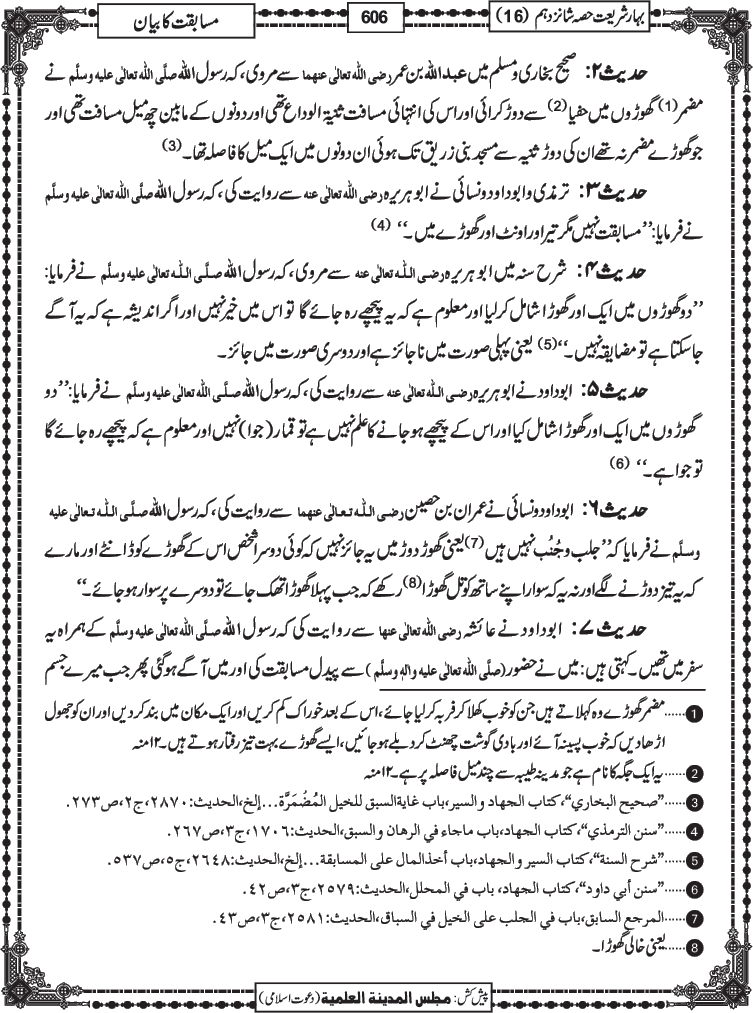 بہار شریعت حصہ شانزدہم (16)
606
مسابقت کا بیان
حدیث ۲: صحیح بخاری و مسلم میں عبداللہ بن عمر رضی اللہ تعالیٰ عنہما سے مروی، کہ رسول اللہ صلَّی اللہ تعالیٰ علیہ وسلَّم نے
مضمر (1) گھوڑوں میں حفیا (2) سے دوڑ کرائی اور اس کی انتہائی مسافت ثنیۃ الوداع تھی اور دونوں کے مابین چھ میل مسافت تھی اور
جو گھوڑے مضمر نہ تھے ان کی دوڑ ثنیہ سے مسجد بنی زریق تک ہوئی ان دونوں میں ایک میل کا فاصلہ تھا۔ (3)
حدیث ۳: ترمذی و ابوداود و نسائی نے ابوہریرہ رضی اللہ تعالیٰ عنہ سے روایت کی، کہ رسول اللہ صلَّی اللہ تعالیٰ علیہ وسلَّم
نے فرمایا: ’’مسابقت نہیں مگر تیر اور اونٹ اور گھوڑے میں۔‘‘ (4)
حدیث ۴: شرح سنہ میں ابوہریرہ رضی اللہ تعالیٰ عنہ سے مروی، کہ رسول اللہ صلَّی اللہ تعالیٰ علیہ وسلَّم نے فرمایا:
’’دو گھوڑوں میں ایک اور گھوڑا شامل کر لیا اور معلوم ہے کہ یہ پیچھے رہ جائے گا تو اس میں خیر نہیں اور اگر اندیشہ ہے کہ یہ آگے
جا سکتا ہے تو مضایقہ نہیں۔‘‘ (5) یعنی پہلی صورت میں ناجائز ہے اور دوسری صورت میں جائز۔
حدیث ۵: ابوداود نے ابوہریرہ رضی اللہ تعالیٰ عنہ سے روایت کی، کہ رسول اللہ صلَّی اللہ تعالیٰ علیہ وسلَّم نے فرمایا: ’’دو
گھوڑوں میں ایک اور گھوڑا شامل کیا اور اس کے پیچھے ہو جانے کا علم نہیں ہے تو قمار (جوا) نہیں اور معلوم ہے کہ پیچھے رہ جائے گا
تو جوا ہے۔‘‘ (6)
حدیث ۶: ابوداود و نسائی نے عمران بن حصین رضی اللہ تعالیٰ عنہما سے روایت کی، کہ رسول اللہ صلَّی اللہ تعالیٰ علیہ
وسلَّم نے فرمایا کہ ’’جلب و جُنُب نہیں ہیں (7) یعنی گھوڑ دوڑ میں یہ جائز نہیں کہ کوئی دوسرا شخص اس کے گھوڑے کو ڈانٹے اور مارے
کہ یہ تیز دوڑنے لگے اور نہ یہ کہ سوار اپنے ساتھ کوتل گھوڑا (8) رکھے کہ جب پہلا گھوڑا تھک جائے تو دوسرے پر سوار ہو جائے۔‘‘
حدیث ۷: ابوداود نے عائشہ رضی اللہ تعالیٰ عنہا سے روایت کی کہ رسول اللہ صلَّی اللہ تعالیٰ علیہ وسلَّم کے ہمراہ یہ
سفر میں تھیں۔ کہتی ہیں: میں نے حضور (صلَّی اللہ تعالیٰ علیہ واٰلہٖ وسلَّم) سے پیدل مسابقت کی اور میں آگے ہو گئی پھر جب میرے جسم
1 ......مضمر گھوڑے وہ کہلاتے ہیں جن کو خوب کھلا کر فربہ کر لیا جائے، اس کے بعد خوراک کم کریں اور ایک مکان میں بند کر دیں اور ان کو جھول
اڑھا دیں کہ خوب پسینہ آئے اور بادی گوشت چھنٹ کر دبلے ہو جائیں، ایسے گھوڑے بہت تیز رفتار ہوتے ہیں۔ ۱۲منہ
2 ......یہ ایک جگہ کا نام ہے جو مدینہ طیبہ سے چند میل فاصلہ پر ہے۔ ۱۲منہ
3 ......”صحیح البخاري“، کتاب الجھاد والسیر، باب غایۃ السبق للخیل المُضَمَّرَۃ...إلخ، الحدیث: ۲۸۷۰، ج۲، ص۲۷۳.
4 ......”سنن الترمذي“، کتاب الجھاد، باب ماجاء في الرھان والسبق، الحدیث: ۱۷۰۶، ج۳، ص۲۶۷.
5 ......”شرح السنۃ“، کتاب السیر والجھاد، باب أخذ المال علی المسابقۃ...إلخ، الحدیث: ۲۶۴۸، ج۵، ص۵۳۷.
6 ......”سنن أبي داود“، کتاب الجھاد، باب في المحلل، الحدیث: ۲۵۷۹، ج۳، ص۴۲.
7 ......المرجع السابق، باب في الجلب علی الخیل في السباق، الحدیث: ۲۵۸۱، ج۳، ص۴۳.
8 ......یعنی خالی گھوڑا۔
پیش کش: مجلس المدینۃ العلمیۃ (دعوت اسلامی)